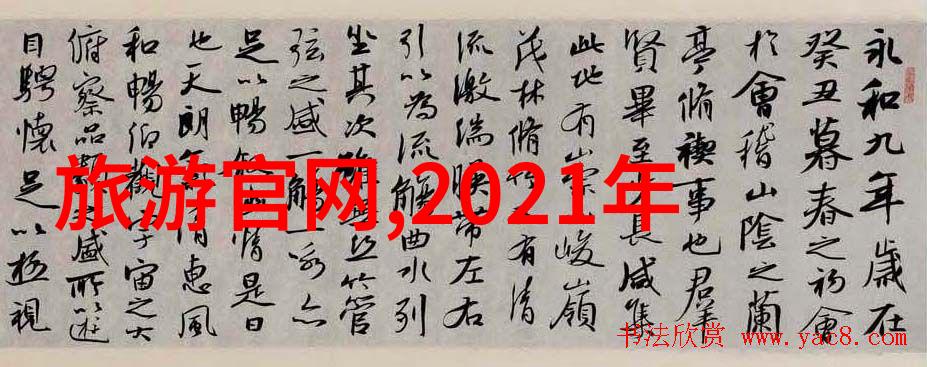 永和九年歲在
癸丑暮春之初會
於會稽山陰之蘭
亭脩禊事也群
賢畢至少長咸集
此地有崇山峻嶺
茂林脩竹又有清
流激湍暎帶左右
引以為流觴曲水列
坐其次雖無絲竹管
弦之盛一觴一詠亦
足以暢敘幽情是日
也天朗氣清惠風
和暢仰觀宇宙之大
俯察品類之盛所以遊
目騁懷足以極視
旅游官网,2021年
书法欣赏 www.yac8.com